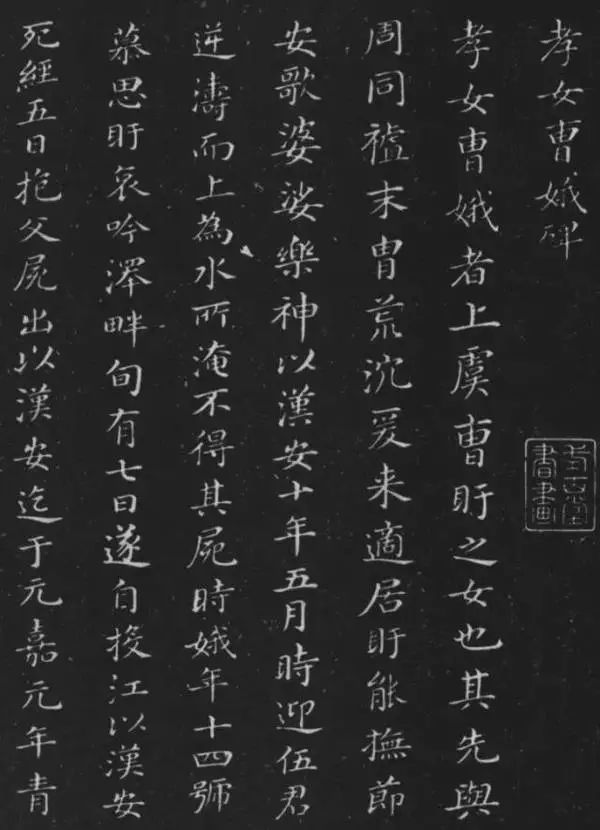 孝女曹娥碑
孝女曹娥者上虞曹盱之女也其先與
周同禋末胄荒沈爰来適居盱能撫節
安歌婆娑樂神以漢安十年五月時迎伍君
逆濤而上為水所淹不得其屍時娥年十四號
慕思盱哀吟澤畔旬有七日遂自投江以漢安
死經五日抱父屍出以漢安迄于元嘉元年青
書畫